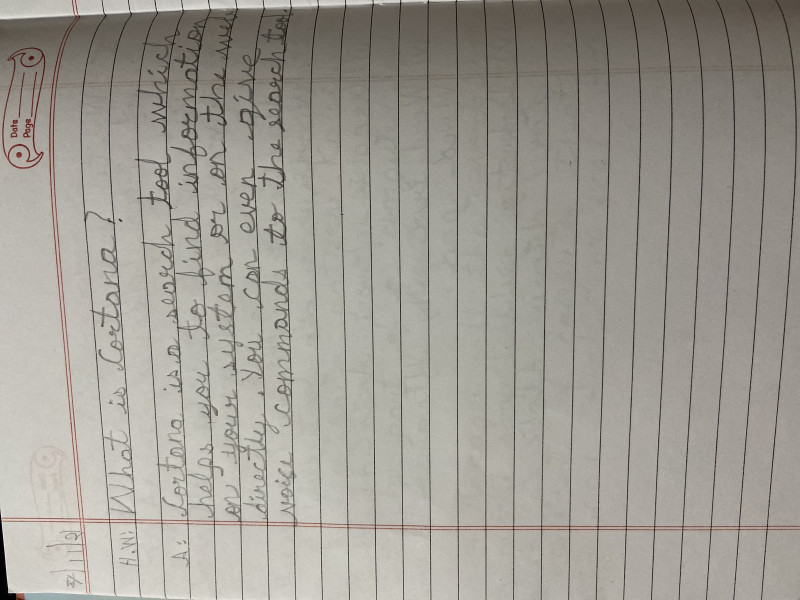 Date
Page
H.W: What is Cortana?
A: Cortana is a search tool which
helps you to find information
on your system or on the web
directly. You can even give
voice commands to the search too